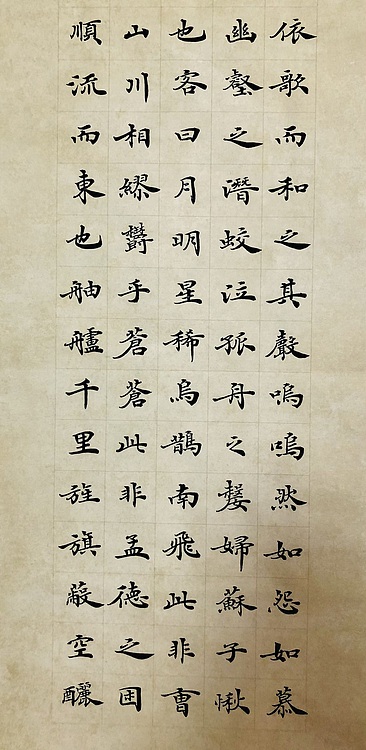 依歌而和之其聲嗚嗚然如怨如慕
幽壑之潛蛟泣孤舟之嫠婦蘇子愀
也客曰月明星稀烏鵲南飛此非曹
山川相繆鬱乎蒼蒼此非孟德之困
順流而東也舳艫千里旌旗蔽空釃